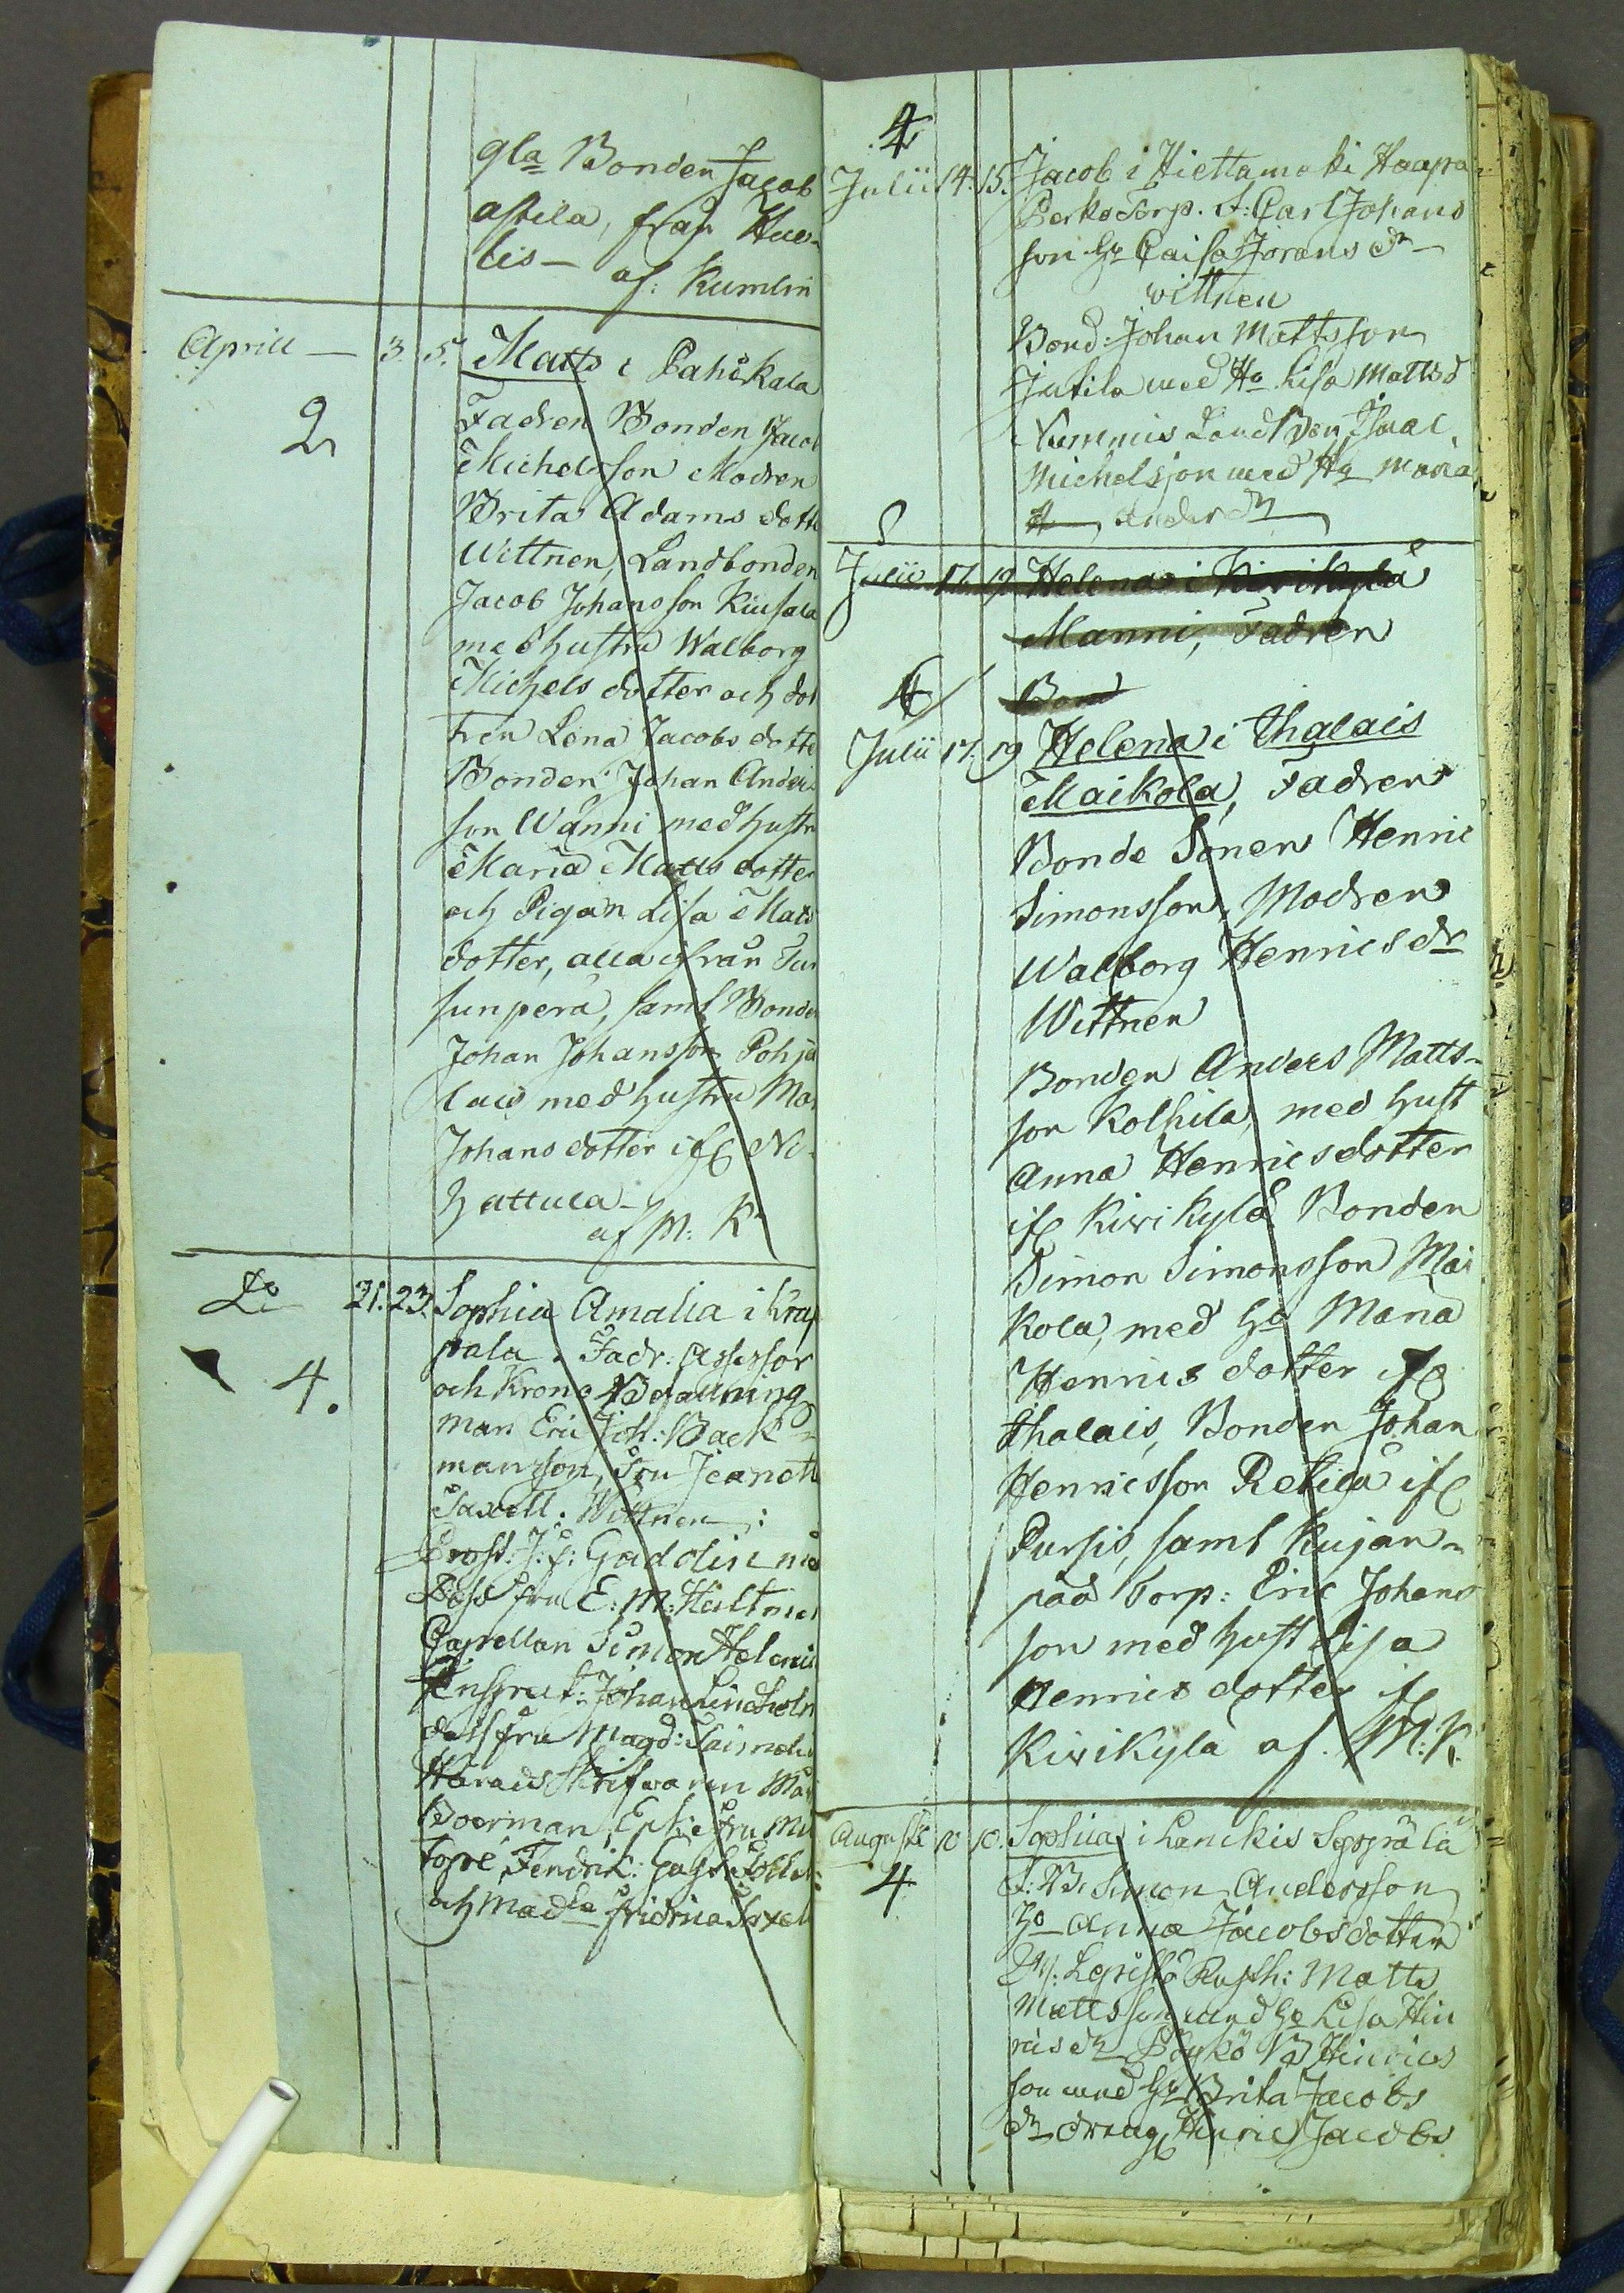 gla Bonden Jacob
astila, från Hue-
lis - af: Kumlin
Aprill — 3. 5. Matts i Pahikala
2 Fadren Bonden Jacob
Michelsson Modren
Brita Adams dotte
Wittnen, Landbonden
Jacob Johansson Kiusala
med hustru Walborg
Michels dotter och dot
tren Lena Jacobs dotte
Bonden Johan Anders
son Wänni med hustr
Maria Matts dotter
och Pigan Lisa Mats
dotter, alla ifrån Tur
sunperä, samt Bonden
Johan Johansson Pohja
lais med hustru Mar
Johans dotter ifr Ni
hattula -
af M: K
Do 21. 23. Sophia Amalia i Krap
4. pala. Fadr: Assessor
och Krono Befallning
man Eric Joh: Back=
mansson, Fru Jeanette
Saxell. Wittnen:
Prost. J: f: Gadolin med
Dess fru E: M: Hultmar
Capellan Simon Helenius
Inspect: Johan Lindholm
dess fru Magd:
Härads Skrifvaren
Boerman,
topré, Fendrik:
och Madle Fridrica Saxell
4
Julii 14. 15. Jacob i Hiettamäki Haapa
Torp. F: Carl Johans
son H. Caisa Jörans dr -
wittnen
Bond: Johan Mattsson
Jutila med Ha Lisa Mattsd
Nummis Land Bon Isaac
Michelsson med Ha Maria
Anders dr
Julii 17. 19. Helena i Kirikylä
Manni, Fadren
Bond
4
Julii 17. 19 Helena i thalais
Maikola, Fadren
Bonde Sonen Henric
Simonsson, Modren
Walborg Henrics dr
Wittnen
Bonden Anders Matts-
son Kolhila, med hust
Anna Henricsdotter
ifr Kirikylä Bonden
Simon Simonsson Mai
kola, med ha Maria
Henrics dotter ifr
thalais, Bonden Johan
Henricsson Retila ifr
Pursis, samt Kujan-
pää Torp: Eric Johans
son med hust Lisa
Henrics dotter ifr
Kirikylä af. M: K.
Augusti 10. Sophia i Lanckis Seppälä
4 F: B. Simon Andersson
Ha Anna Jacobsdotter
W: Lepistö Rusth: Matts
Mattsson med ha Lisa Hin
rics dr B Hinrics
son med ha Brita Jacobs
dr dräng Hinric Jacobs